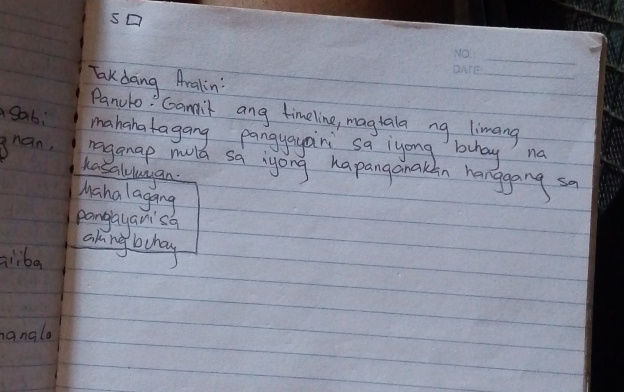 5 □
NO.
DATE
Takdang Aralin:
Panuto: Gamit ang timeline, magtala ng limang
mahahatagang pangyayari sa iyong buhay na
naganap mula sa iyong kapanganakan hanggang sa
kasalukuyan.
Mahalagang
pangyayari sa
aking buhay
sabi
nan.
aiiba
nanalo